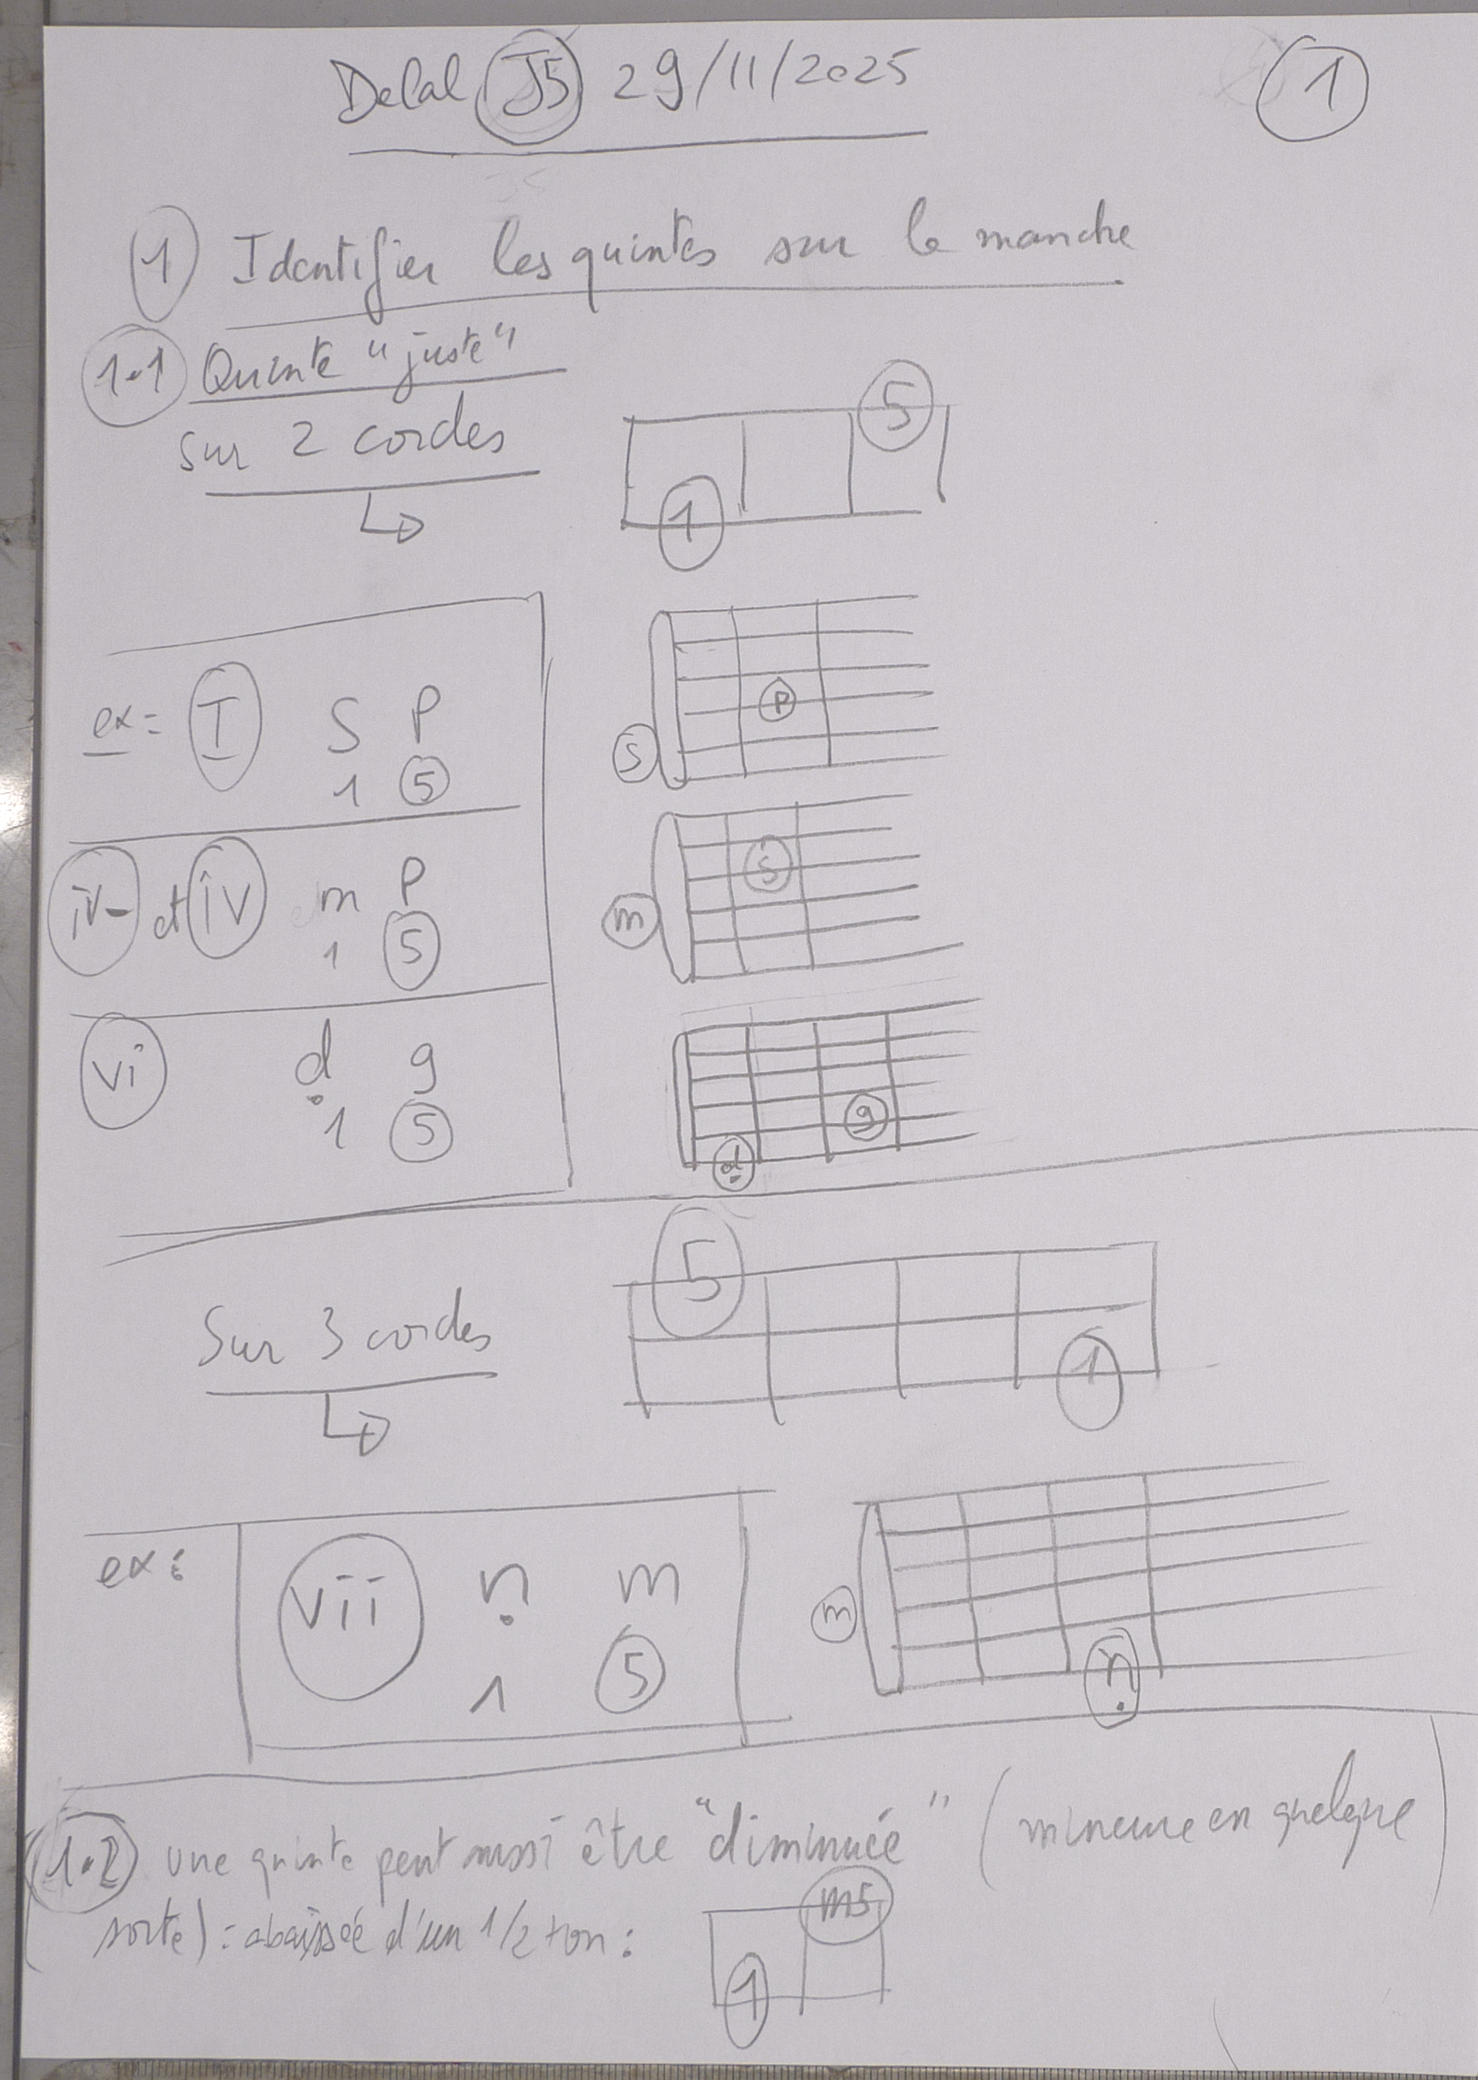 Delal J5 29/11/2025
1
1 Identifier les quintes sur le manche
1.1 Quinte "juste"
sur 2 cordes
5
1
ex: I S P
1 5
P
S
iv- et iv m P
1 5
S
m
vi ḍ g
1 5
g
ḍ
5
Sur 3 cordes
1
ex: vii ṇ m
1 5
m
ṇ
1.2 une quinte peut aussi être "diminuée" (mineure en quelque
sorte) = abaissée d'un 1/2 ton :
m5
1